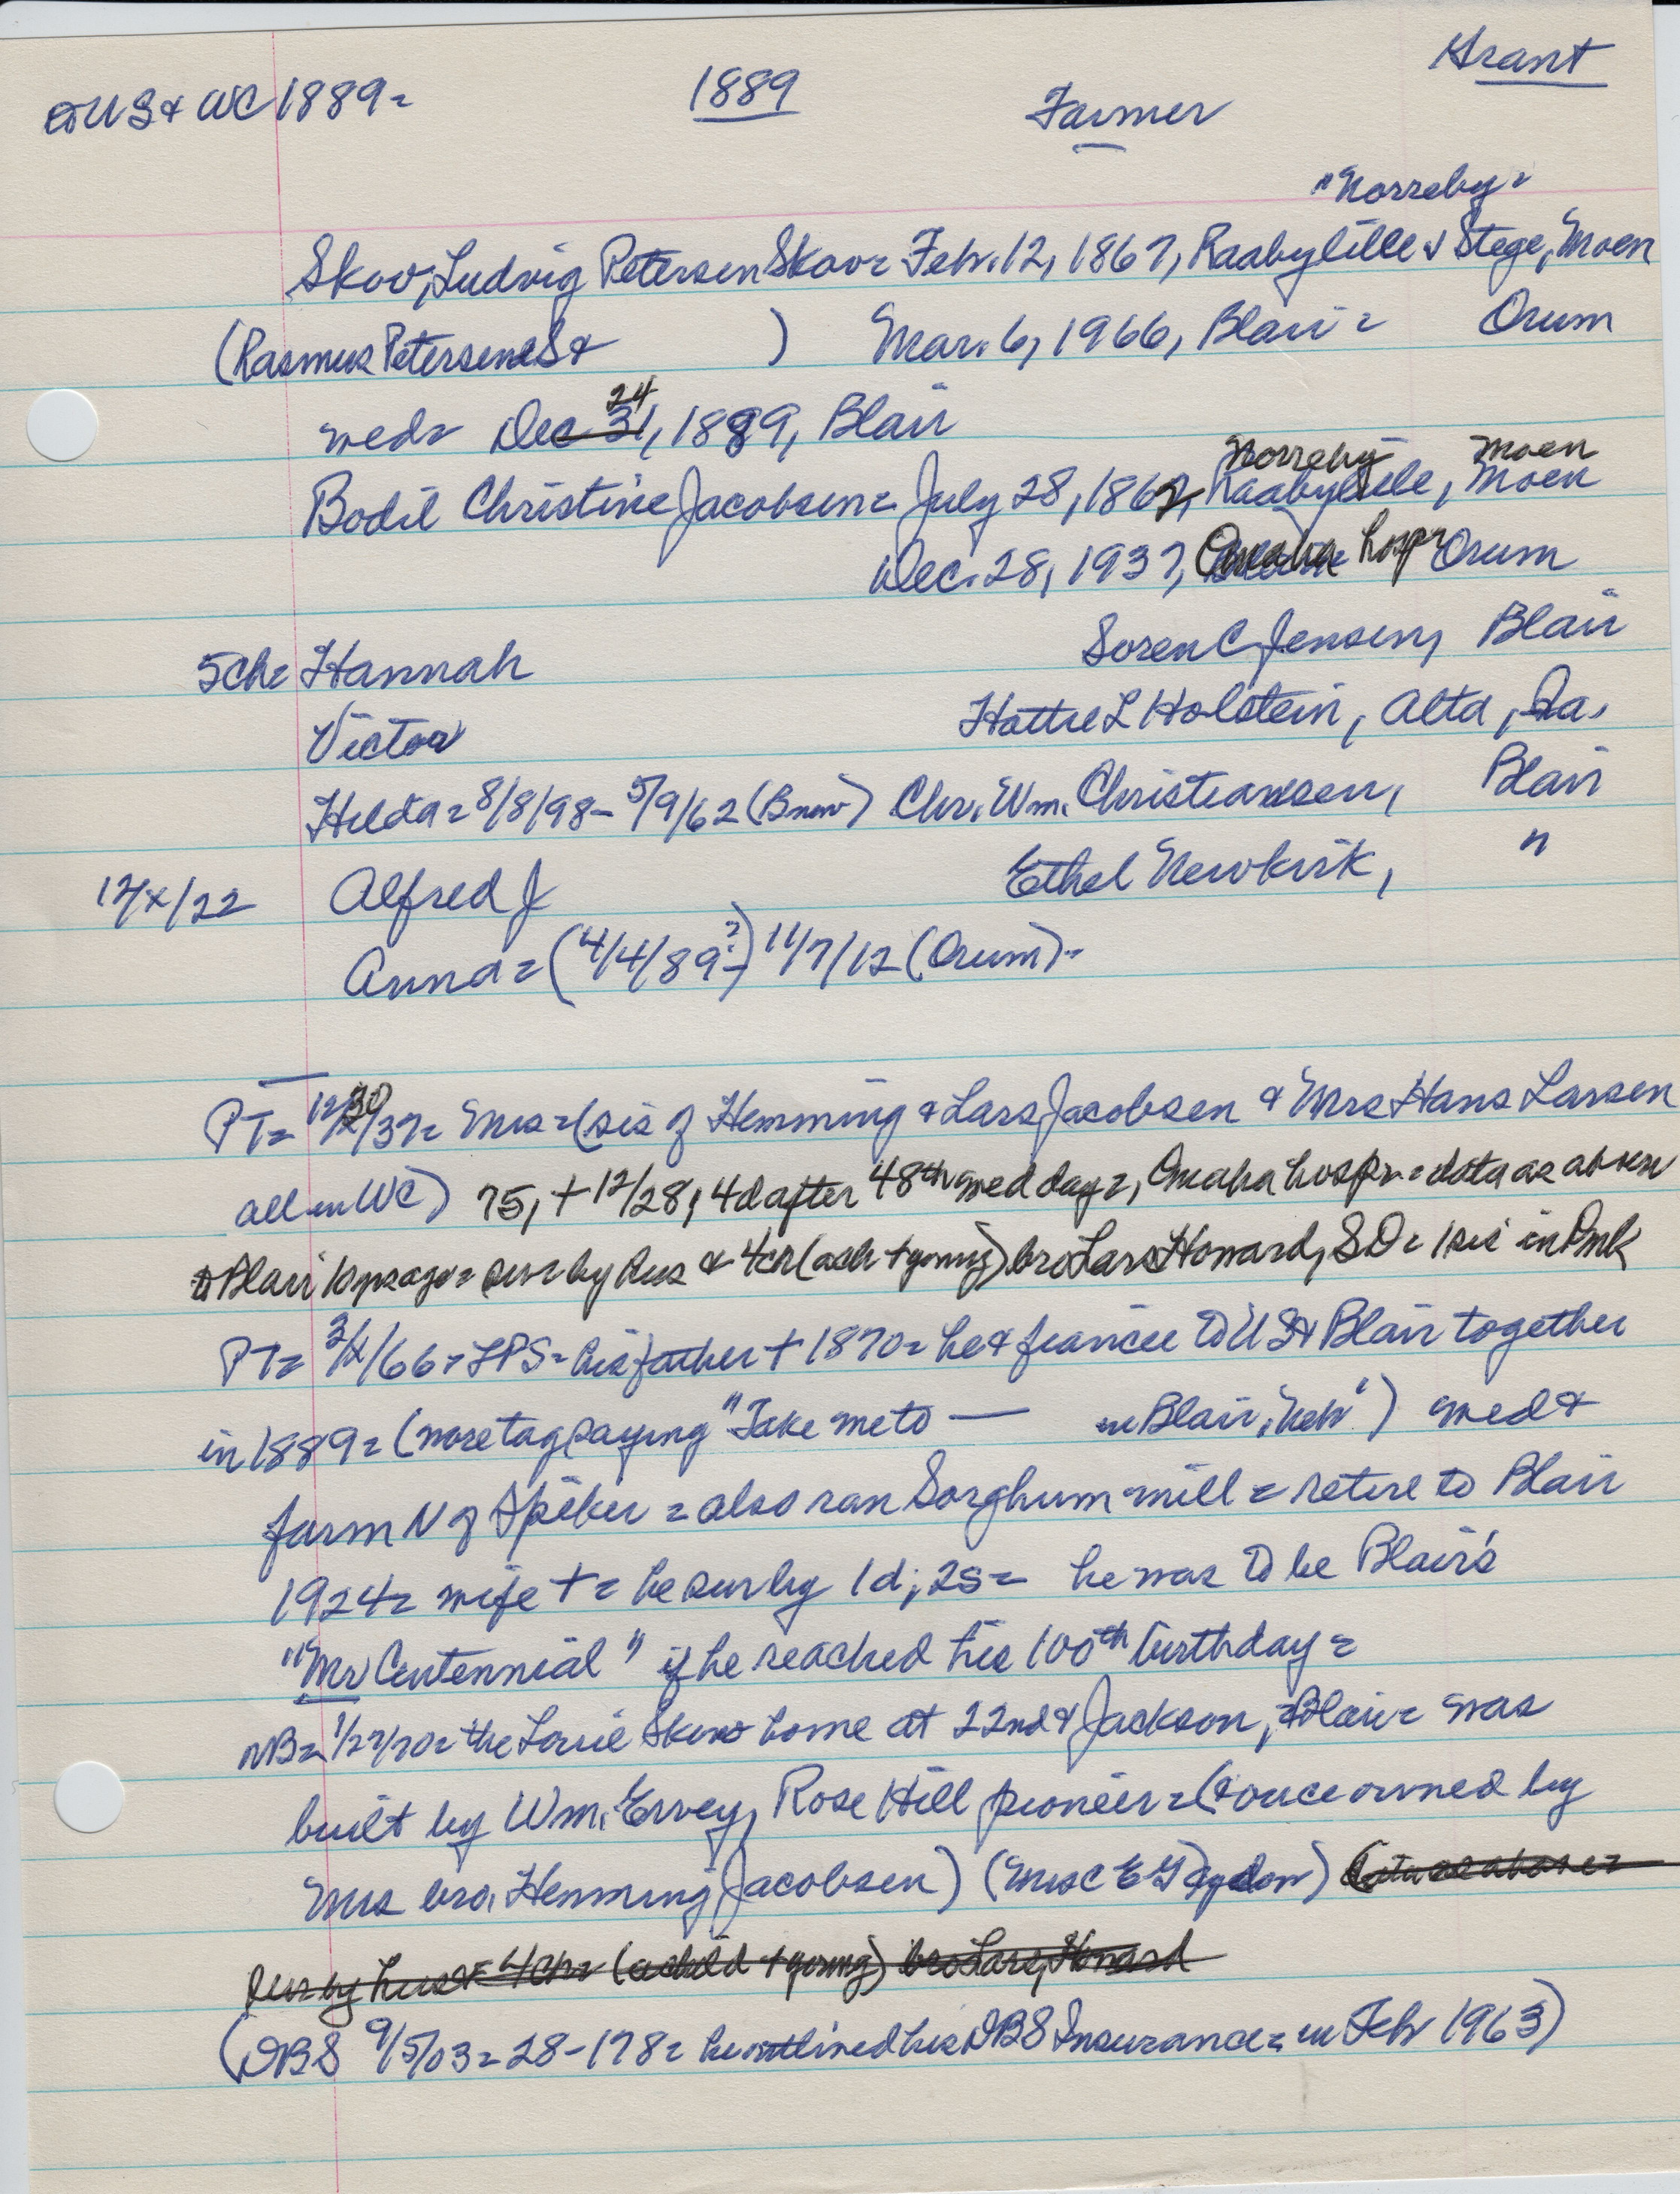 Grant
to US & WC 1889= 1889 Farmer
"Norreby"
Skov, Ludvig Petersen Skov= Febr. 12, 1867, Raabylille & Stege, Moen
(Rasmus Petersen S & ) Mar. 6, 1966, Blair= Orum
24
wed= Dec 31, 1889, Blair
Norreby Moen
Bodil Christine Jacobsen= July 28, 1862, Raabylille, Moen
Dec. 28, 1937, Omaha hosp= Orum
5ch= Hannah Soren C Jensen, Blair
Victor Hattie L Holstein, Alta, Ia.
Hilda= 8/8/98 - 5/9/62 (Bnew) Chr. Wm. Christiansen, Blair
12/x/22 Alfred J Ethel Newkirk, "
Anna= (4/4/89?) - 11/7/12 (Orum)=
PT= 12/30/37= Mrs= (sis of Hemming & Lars Jacobsen & Mrs Hans Larsen
all in WC) 75, + 12/28, 4d after 48th wed day=, Omaha hosp.= data as above
to Blair 10 yrs ago= sur= by hus & 4ch (a ch + young) bro Lars Howard, SD= 1 sis in Dmk
PT= 3/x/66= LPS= his father + 1870= he & fiancee to US & Blair together
in 1889= (wore tag saying "Take me to — in Blair, Neb") wed &
farm N of Spiker= also ran Sorghum mill= retire to Blair
1924= wife += he sur by 1d; 2s= he was to be Blair's
"Mr Centennial" if he reached his 100th birthday=
NB= 1/27/70= the Louie Skov home at 22nd & Jackson, Blair= was
built by Wm. Ervey, Rose Hill pioneer= (& once owned by
Mrs bro. Hemming Jacobsen) (Mrs C E) (data as above=
sur by hus & 4ch= (a child + young) bro Lars, Howard
(DBS 9/5/03= 28-178= he outlived his DBS Insurance= in Feb 1963)